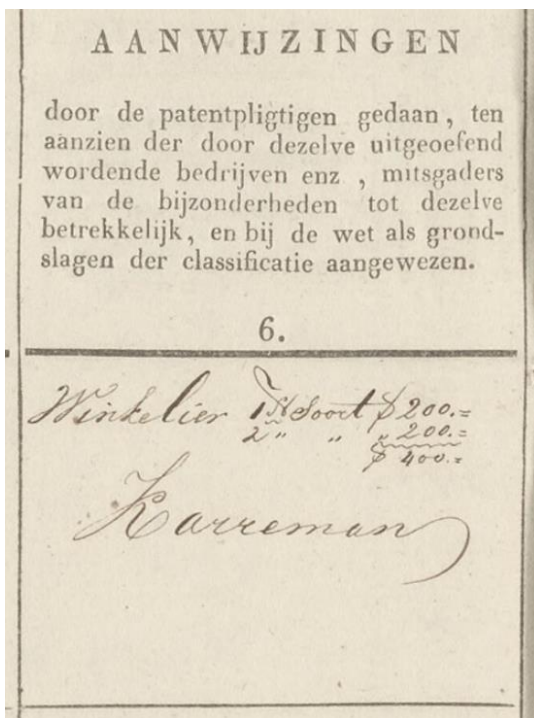 AANWIJZINGEN
door de patentpligtigen gedaan, ten
aanzien der door dezelve uitgeoefend
wordende bedrijven enz, mitsgaders
van de bijzonderheden tot dezelve
betrekkelijk, en bij de wet als grond-
slagen der classificatie aangewezen.
6.
Winkelier 1e Soort ƒ 200.=
2 " " " 200.=
ƒ 400.=
Karreman